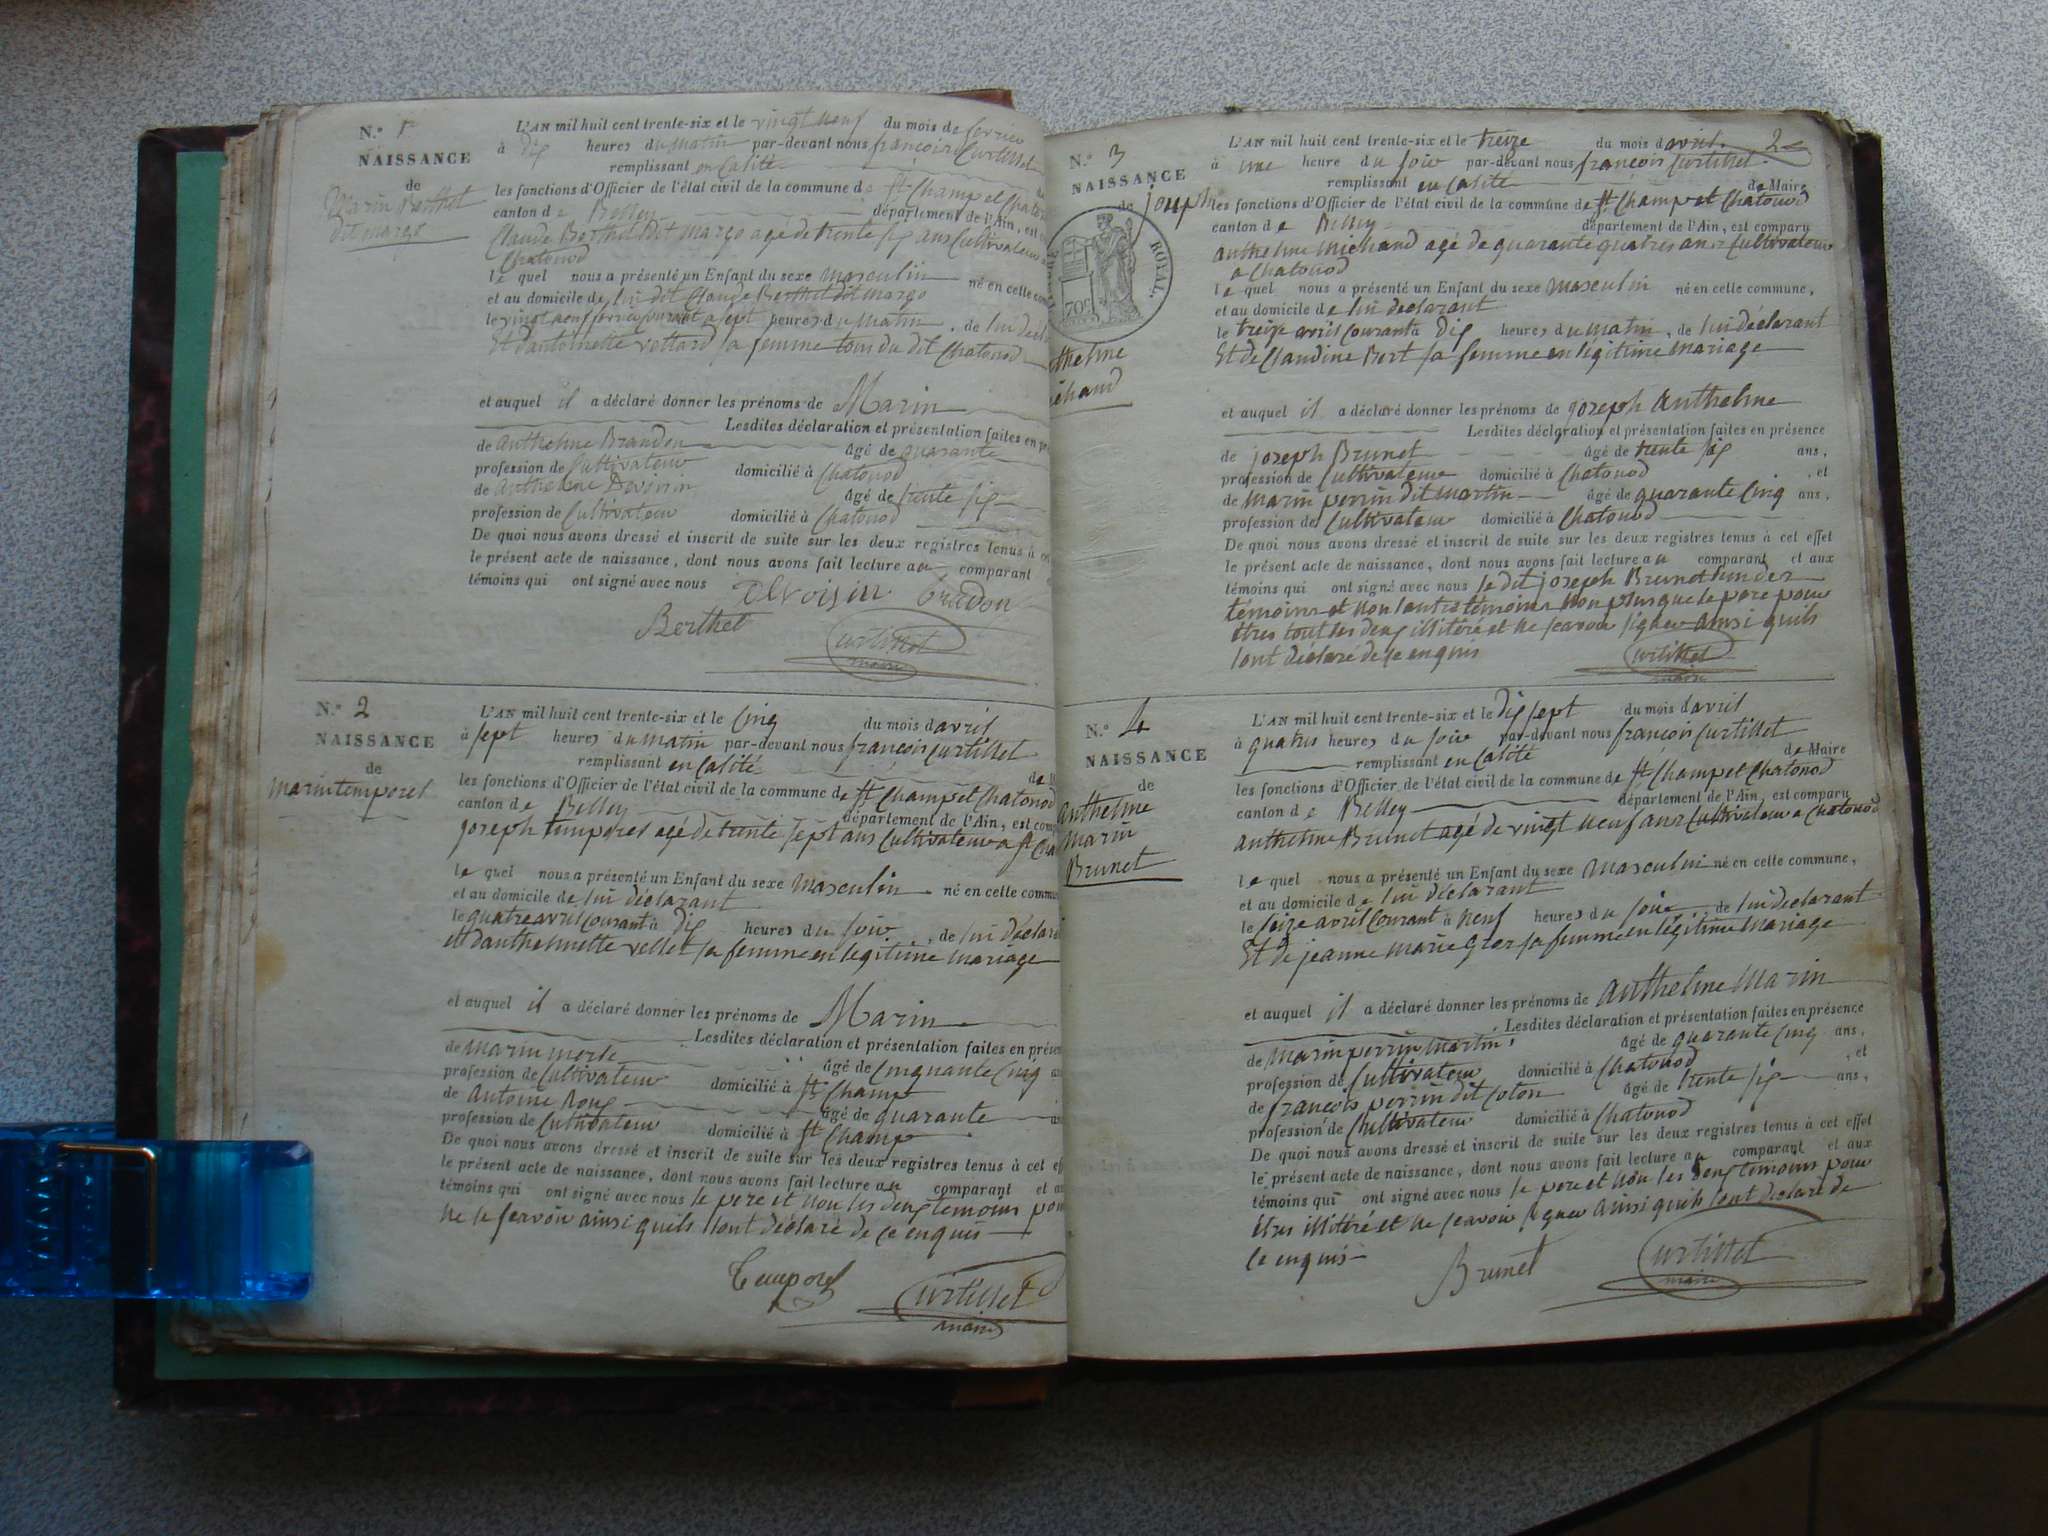 N.º 1
NAISSANCE
de
Marin Berthet
dit margo
L'AN mil huit cent trente-six et le vingt neuf du mois de fevrier
à dix heures du matin par-devant nous françois Curtillet
remplissant en Calité
les fonctions d'Officier de l'état civil de la commune de St Champ et Chatonod
canton de Belley département de l'Ain, est
Claude Berthet dit margo agé de trente six ans Cultivateur
Chatonod
le quel nous a présenté un Enfant du sexe masculin né en cette
et au domicile de lui dit Claude Berthet dit margo
le vingt neuf fevrier courant a sept heures du matin, de lui
Et d'antoinette vettard sa femme tous du dit Chatonod
et auquel il a déclaré donner les prénoms de Marin
Lesdites déclaration et présentation faites en
de anthelme Brandon âgé de quarante
profession de Cultivateur domicilié à Chatonod
de anthelme Devoisin âgé de trente six
profession de Cultivateur domicilié à Chatonod
De quoi nous avons dressé et inscrit de suite sur les deux registres tenus à
le présent acte de naissance, dont nous avons fait lecture au comparant
témoins qui ont signé avec nous
Devoisin
Berthet
Curtillet
maire
N.º 2
NAISSANCE
de
marin temporel
L'AN mil huit cent trente-six et le Cinq du mois d'avril
à sept heures du matin par-devant nous françois Curtillet
remplissant en Calité de
les fonctions d'Officier de l'état civil de la commune de St Champ et Chatonod
canton de Belley département de l'Ain, est
joseph temporel agé de trente sept ans Cultivateur a St
le quel nous a présenté un Enfant du sexe masculin né en cette
et au domicile de lui déclarant
le quatre avril courant à dix heures du soir, de lui
et d'anthelmette vellet sa femme en legitime mariage
et auquel il a déclaré donner les prénoms de Marin
Lesdites déclaration et présentation faites en
de marin merle âgé de Cinquante Cinq
profession de Cultivateur domicilié à St Champ
de Antoine Roux âgé de quarante
profession de Cultivateur domicilié à St Champ
De quoi nous avons dressé et inscrit de suite sur les deux registres tenus à cet
le présent acte de naissance, dont nous avons fait lecture au comparant et
témoins qui ont signé avec nous le pere et non les deux temoins pour
ne le scavoir ainsi quils lont déclaré de ce enquis
Temporel
Curtillet
maire
2e
N.º 3
NAISSANCE
de joseph
ROYAL.
70c
L'AN mil huit cent trente-six et le treize du mois d'avril
à une heure du soir par-devant nous françois Curtillet
remplissant en Calité de Maire
les fonctions d'Officier de l'état civil de la commune de St Champ et Chatonod
canton de Belley département de l'Ain, est comparu
anthelme michaud agé de quarante quatres ans Cultivateur
a Chatonod
le quel nous a présenté un Enfant du sexe masculin né en cette commune,
et au domicile de lui déclarant
le treize avril courant à dix heures du matin, de lui déclarant
Et de Claudine Bort sa femme en legitime mariage
et auquel il a déclaré donner les prénoms de joseph anthelme
Lesdites déclaration et présentation faites en présence
de joseph Brunet âgé de trente six ans,
profession de Cultivateur domicilié à Chatonod, et
de marin perrin dit martin âgé de quarante Cinq ans,
profession de Cultivateur domicilié à Chatonod
De quoi nous avons dressé et inscrit de suite sur les deux registres tenus à cet effet
le présent acte de naissance, dont nous avons fait lecture au comparant et aux
témoins qui ont signé avec nous le dit joseph Brunet lun des
témoins et non lautre témoins non plus que le pere pour
être tout les deux illitéré et ne scavoir signer ainsi quils
lont déclaré de ce enquis
Curtillet
maire
N.º 4
NAISSANCE
de
anthelme
marin
Brunet
L'AN mil huit cent trente-six et le dix sept du mois d'avril
à quatres heures du soir par-devant nous françois Curtillet
remplissant en Calité de Maire
les fonctions d'Officier de l'état civil de la commune de St Champ et Chatonod
canton de Belley département de l'Ain, est comparu
anthelme Brunet agé de vingt neuf ans Cultivateur a Chatonod
le quel nous a présenté un Enfant du sexe masculin né en cette commune,
et au domicile de lui déclarant
le seize avril courant à neuf heures du soir de lui déclarant
Et de jeanne marie Gros sa femme en legitime mariage
et auquel il a déclaré donner les prénoms de anthelme Marin
Lesdites déclaration et présentation faites en présence
de marin perrin martin âgé de quarante Cinq ans,
profession de Cultivateur domicilié à Chatonod, et
de françois perrin dit Coton âgé de trente six ans,
profession de Cultivateur domicilié à Chatonod
De quoi nous avons dressé et inscrit de suite sur les deux registres tenus à cet effet
le présent acte de naissance, dont nous avons fait lecture au comparant et aux
témoins qui ont signé avec nous le pere et non les deux temoins pour
être illitéré et ne scavoir signer ainsi quils lont déclaré de
ce enquis
Brunet
Curtillet
maire